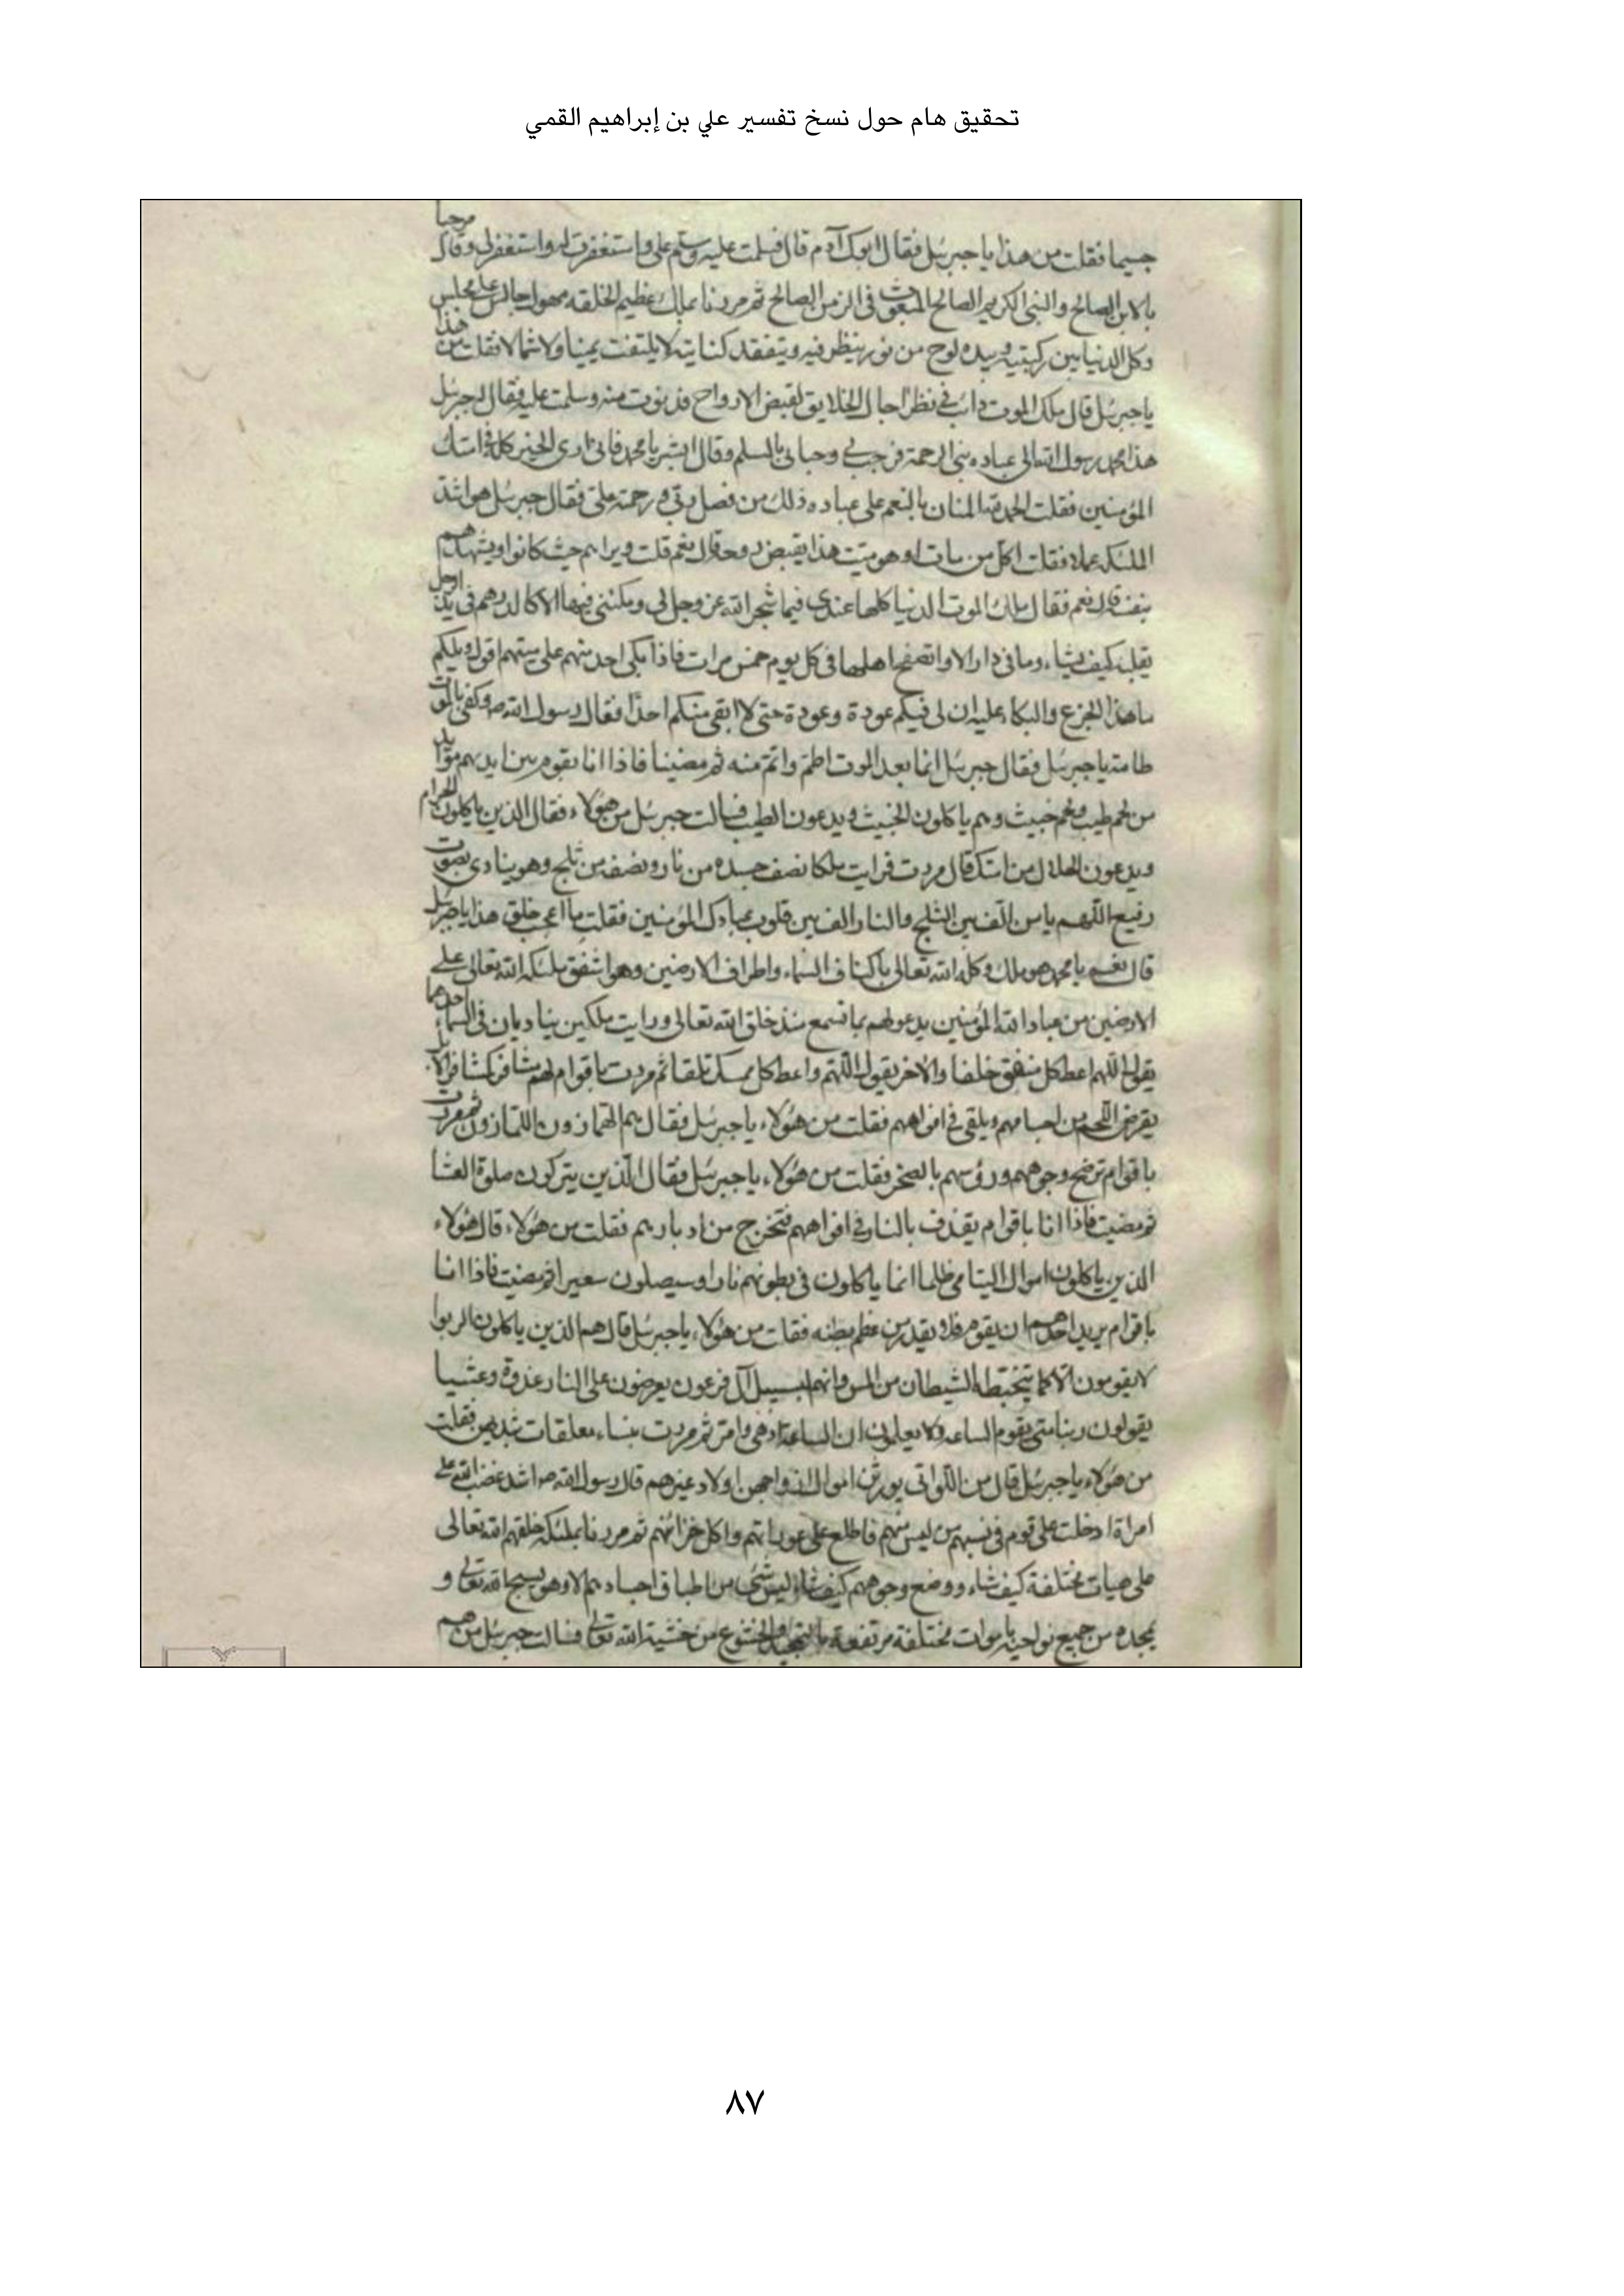 تحقيق هام حول نسخ تفسير علي بن إبراهيم القمي
جسيما فقلت من هذا يا جبرئيل فقال ابوك آدم قال فسلمت عليه وسلم علي واستغفرت له واستغفر لي وقال مرحبا
بالابن الصالح والنبي الكريم الصالح المبعوث في الزمن الصالح ثم مررنا بملك عظيم الخلقه مهول جالس على مجلس
وكل الدنيا بين ركبتيه وبيده لوح من نور ينظر فيه ويتفقد كتابته لا يلتفت يمينا ولا شمالا فقلت من هذا
يا جبرئيل قال ملك الموت دائب في نظر اجال الخلايق لقبض الارواح فدنوت منه وسلمت عليه فقال له جبرئيل
هذا محمد رسول الله الى عباده نبي الرحمة فرحب بي وحياني بالسلم وقال ابشر يا محمد فاني ارى الخير كله في امتك
المؤمنين فقلت الحمد لله المنان بالنعم على عباده ذلك من فضل ربي ورحمة علي فقال جبرئيل هو اشد
الملئكه عملا فقلت اكل من مات او هو ميت هذا يقبض روحه قال نعم قلت ويراهم حيث كانوا ويشهدهم
بنفسه قال نعم فقال ملك الموت الدنيا كلها عندي فيما سخر الله عز وجل لي ومكنني فيها الا كالدرهم في يد الرجل
يقلبه كيف يشاء وما في دار الا وانا اتصفح اهلها في كل يوم خمس مرات فاذا بكى احد منهم على ميتهم اقول ويلكم
ما هذا الجزع والبكاء عليه ان لي فيكم عودة وعودة حتى لا ابقي منكم احدا فقال رسول الله ص وكفى بالموت
طامة يا جبرئيل فقال جبرئيل انما بعد الموت اطم واتم منه ثم مضينا فاذا انا بقوم بين ايديهم موائد
من لحم طيب ولحم خبيث وهم ياكلون الخبيث ويدعون الطيب فسالت جبرئيل من هؤلاء فقال الذين ياكلون الحرام
ويدعون الحلال من امتك قال مررت فرايت ملكا نصف جسده من نار ونصفه من ثلج وهو ينادي بصوت
رفيع اللهم يا من الف بين الثلج والنار الف بين قلوب عبادك المؤمنين فقلت ما اعجب خلق هذا يا جبرئيل
قال نعم يا محمد هو ملك وكله الله تعالى باكناف السماء واطراف الارضين وهو اشفق ملئكة الله تعالى على
الارضين من عباد الله المؤمنين يدعو لهم بما تسمع منذ خلق الله تعالى ورايت ملكين يناديان في السماء احدهما
يقول اللهم اعط كل منفق خلفا والاخر يقول اللهم واعط كل ممسك تلفا ثم مررت باقوام لهم مشافر كمشافر الابل
يقرض اللحم من اجسامهم ويلقى في افواههم فقلت من هؤلاء يا جبرئيل فقال هم الهمازون اللمازون ثم مررت
باقوام ترضخ وجوههم ورؤسهم بالصخر فقلت من هؤلاء يا جبرئيل فقال الذين يتركون صلوة العشا
ثم مضيت فاذا انا باقوام يقذف بالنار في افواههم فتخرج من ادبارهم فقلت من هؤلاء قال هؤلاء
الذين ياكلون اموال اليتامى ظلما انما ياكلون في بطونهم نارا وسيصلون سعيرا ثم مضيت فاذا انا
باقوام يريد احدهم ان يقوم فلا يقدر من عظم بطنه فقلت من هؤلاء يا جبرئيل قال هم الذين ياكلون الربوا
لا يقومون الا كما يتخبطه الشيطان من المس وانهم لبسبيل آل فرعون يعرضون على النار غدوة وعشيا
يقولون ربنا متى يقوم الساعه ولا يعلمون ان الساعة ادهى وامر ثم مررت بنساء معلقات بثديهن فقلت
من هؤلاء يا جبرئيل قال من اللواتي يورثن اموال ازواجهن اولاد غيرهم قال رسول الله ص اشد غضب الله على
امراة ادخلت على قوم في نسبهم من ليس منهم فاطلع على عوراتهم واكل خزائنهم ثم مررنا بملئكة خلقهم الله تعالى
على هيات مختلفة كيف شاء ووضع وجوههم كيف شاء ليس شئ من اطباق اجسادهم الا وهو يسبح الله تعالى و
يمجده من جميع نواحيه باصوات مختلفة مرتفعة بالتمجيد والخشوع من خشية الله تعالى فسالت جبرئيل من هم
٨٧